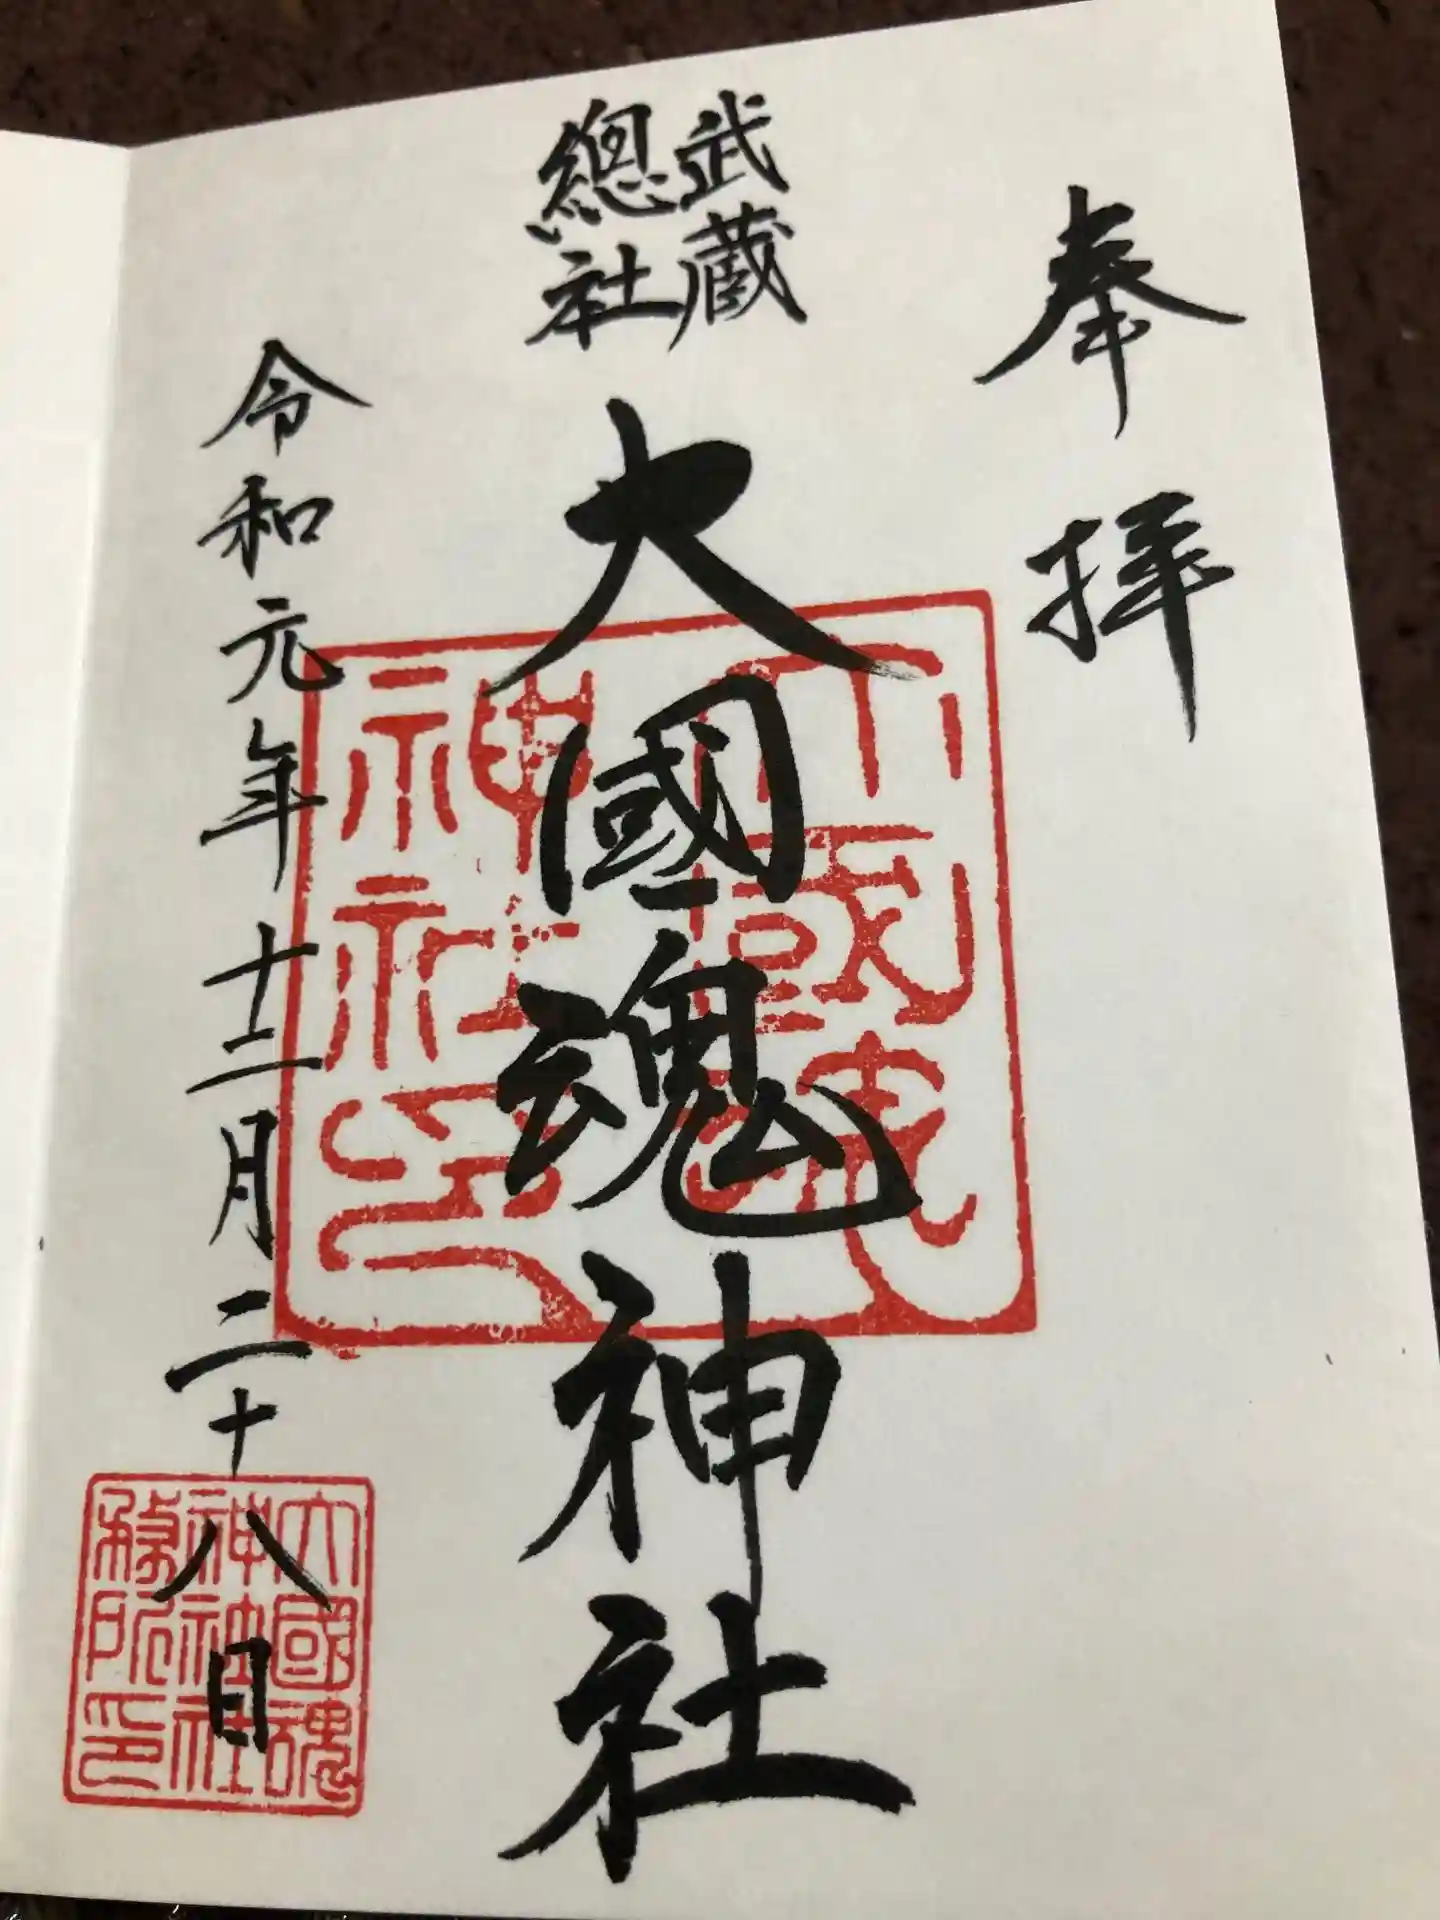 奉拝
武蔵
總社
大國魂神社
令和元年十二月二十八日
大國魂
神社印
大國魂
神社社
務所印